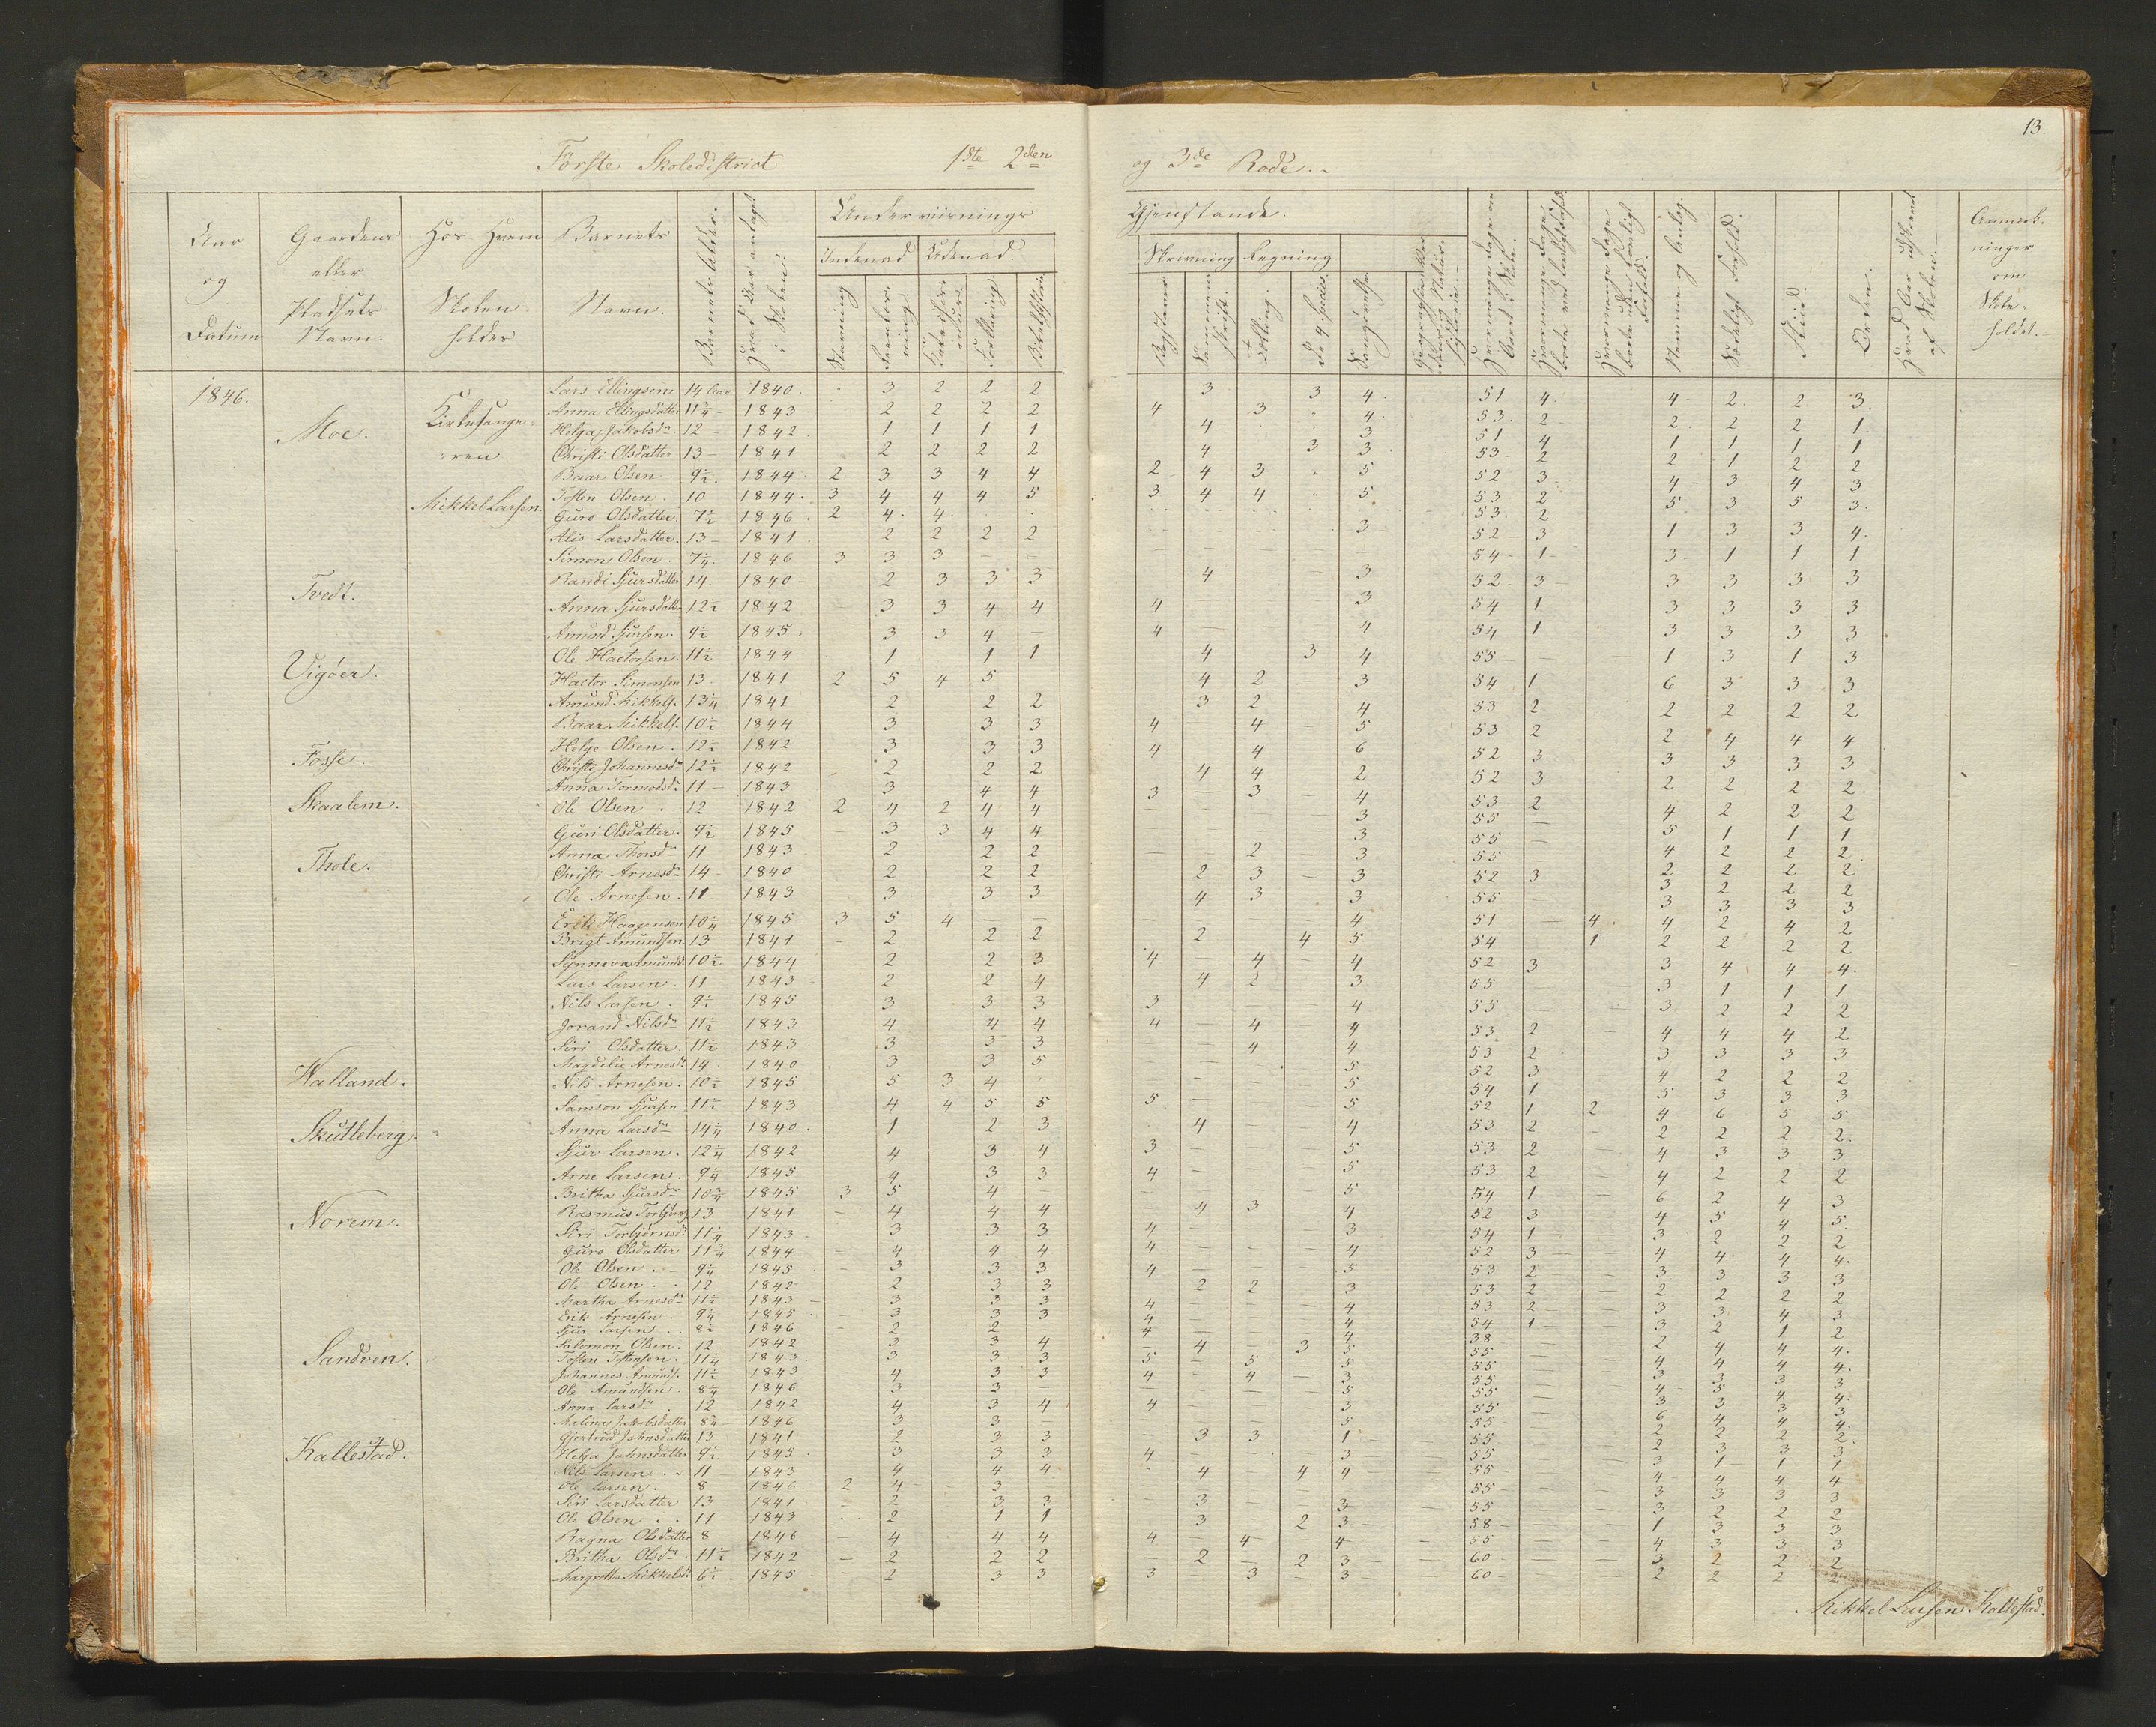 13.
Første Skoledistrict 1ste 2den og 3de Rode.
Aar og Datum
Gaardens eller Pladsets Navn.
Hos Hvem Skolen holdes
Barnets Navn.
Barnets Alder.
Hvad Aar antaget i Skolen?
Underviisnings Gjenstande.
Indenad Udenad.
Stavning
Forklaring
Skrivning Regning
Bogstaver
Sammenskrift.
De 4 Species
Sangøvelse
Nemme og Anlæg.
Sædeligt Forhold.
Fliid.
Orden.
Hvad Aar udskrevet af Skolen.
Anmærkninger om Skoleholdet.
1846.
Moe.
Kirkesangeren
Mikkel Larsen.
Lars Ellingsen 14 Aar 1840 3 2 2 2 3 3 4 51 4 4 2 2 3
Anna Ellingsdatter 11 3/4 1843 2 2 2 2 4 3 4 53 2 2 2 2 1
Helga Jakobsdr 12 1842 1 1 1 1 4 3 51 4 1 1 1 1
Christi Olsdatter 13 1841 2 2 2 2 4 3 3 53 2 2 1 2 2
Baar Olsen 9 1/2 1844 2 3 3 4 4 2 4 3 5 52 3 4 3 4 3
Tosten Olsen 10 1844 3 4 4 4 5 3 4 4 5 53 2 5 3 5 3
Guro Olsdatter 7 1/2 1846 2 4 4 53 2
Alis Larsdatter 13 1841 2 2 2 2 3 52 3 1 3 3 4
Simon Olsen 7 1/4 1846 3 3 3 54 1 3 1 1 1
Tvedt.
Randi Sjursdatter 14 1840 2 3 3 3 4 3 52 3 3 3 3 3
Anna Sjursdatter 12 1/2 1842 3 3 4 4 4 3 54 1 3 3 3 3
Amund Sjursen 9 1/2 1845 3 3 4 4 4 54 1 3 3 3 3
Vigøer.
Ole Hactorsen 11 1/2 1844 1 1 1 4 3 4 55 1 3 1 3
Hactor Simonsen 13 1841 2 5 4 5 4 2 3 54 1 6 3 3 3
Amund Mikkels. 13 1/4 1841 2 2 2 3 2 4 53 2 2 2 2 2
Baar Mikkels. 10 1/2 1844 3 3 3 4 4 5 53 2 2 4 4 4
Fosse.
Helge Olsen 12 1/2 1842 3 3 3 4 4 6 52 3 3 3 3 3
Christi Johannesdr 12 1/2 1842 2 2 2 4 4 2 52 3 2 2 2 2
Anna Tormodsdr 11 1843 3 4 4 3 3 4 53 2 4 2 2 2
Skaalem.
Ole Olsen 12 1842 2 4 2 4 4 3 55 5 1 1 1
Guri Olsdatter 9 1/2 1845 3 3 4 4 3 55 4 2 2 2
Thole.
Anna Thorsdr 11 1843 2 2 2 2 3 55 2 2 2 2
Christi Arnesdr 14 1840 2 2 2 2 3 3 52 3 3 2 2 2
Ole Arnesen 11 1843 3 3 3 4 3 3 55 3 3 3 3
Erik Haagensen 10 1/4 1845 3 5 4 4 51 4 4 2 4 2
Brigt Amundsen 13 1841 2 2 2 2 4 5 54 1 2 2 2 2
Synneva Amundsd. 10 1/2 1844 2 2 3 4 4 4 52 3 3 4 4 4
Lars Larsen 11 1843 2 2 4 4 2 3 55 3 1 1 1
Nils Larsen 9 1/2 1845 3 3 3 3 4 55 3 2 2 2
Jorand Nilsdr 11 1/2 1843 4 4 4 4 4 4 53 2 4 4 4 2
Siri Olsdatter 11 1/2 1843 3 3 3 4 4 53 2 3 3 3 3
Magdeli Arnesdr 14 1840 3 3 5 5 52 3 4 2 2 2
Walland.
Nils Arnesen 10 1/2 1845 5 3 4 5 54 1 5 3 3 3
Samson Sjursen 11 1/2 1843 4 4 5 5 5 5 52 1 2 4 6 5 5
Skutleberg.
Anna Larsdr 14 1/4 1840 1 2 3 4 4 53 2 2 2 2 2
Sjur Larsen 12 1/4 1842 4 3 4 3 5 53 2 4 3 3 3
Arne Larsen 9 1/4 1845 4 3 3 4 5 53 2 4 2 2 2
Britha Sjursdr 10 3/4 1845 3 5 4 5 54 1 6 2 4 3
Norim.
Rasmus Torbjørns. 13 1841 4 4 4 4 3 4 52 3 4 5 4 5
Siri Torbjørnsd. 11 1/4 1843 3 3 3 4 3 54 1 3 2 2 2
Guro Olsdatter 11 3/4 1844 4 4 4 4 4 52 3 4 4 4 4
Ole Olsen 9 1/4 1845 3 3 3 4 5 53 2 3 3 3 3
Ole Olsen 12 1842 2 3 3 2 2 3 53 2 2 2 2 2
Martha Arnesdr 11 1/2 1843 3 3 3 4 4 53 2 3 3 4 3
Erik Arnesen 9 1/4 1845 3 3 3 4 4 54 1 3 2 1 2
Sjur Larsen 8 1/2 1846 2 2 4 4 38 2 4 4 4
Sandven.
Salomon Olsen 12 1842 3 3 4 4 3 5 55 4 4 4 4
Tosten Tostensen 11 1/4 1843 3 3 3 5 5 5 55 3 3 3 3
Johannes Amunds. 11 1/2 1843 4 3 3 4 4 3 55 4 5 4 4
Ole Amundsen 8 3/4 1846 3 3 5 55 3 3 3 3
Anna Larsdr 12 1842 4 3 4 4 3 55 6 4 4 4
Malina Jakobsdatter 8 3/4 1846 3 3 5 55 2 2 2 2
Gjertrud Jahnsdatter 13 1841 2 3 3 3 3 1 55 2 3 3 3
Kallestad.
Helga Jahnsdatter 9 1/2 1845 3 3 3 4 3 55 3 1 1 1
Nils Larsen 11 1843 4 4 4 4 4 4 55 4 4 4 4
Ole Larsen 8 1846 2 4 3 55 3 3 3 3
Siri Larsdatter 13 1841 2 3 3 3 3 55 3 2 2 2
Ole Olsen 11 1843 2 1 1 3 2 3 58 1 3 3 3
Ragna Olsdatter 8 1846 4 4 4 4 4 4 55 4 3 3 3
Britha Olsdr 11 1/2 1842 2 2 2 2 2 3 60 3 2 2 2
Margretha Mikkelsd. 6 1/2 1845 2 3 3 3 3 3 60 2 2 2 2
Mikkel Larsen Kallestad.